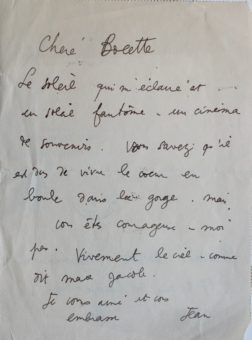 Cheré Bocette
Le soleil qui m'éclaire est
un soleil fantôme - un cinéma
de souvenirs. Vous savez qu'il
est dur de vivre le cœur en
boule dans la gorge. mais
vous êtes courageuse - moi
pas. Vivement le ciel - comme
dit max Jacob.
Je vous aime et vous
embrasse Jean